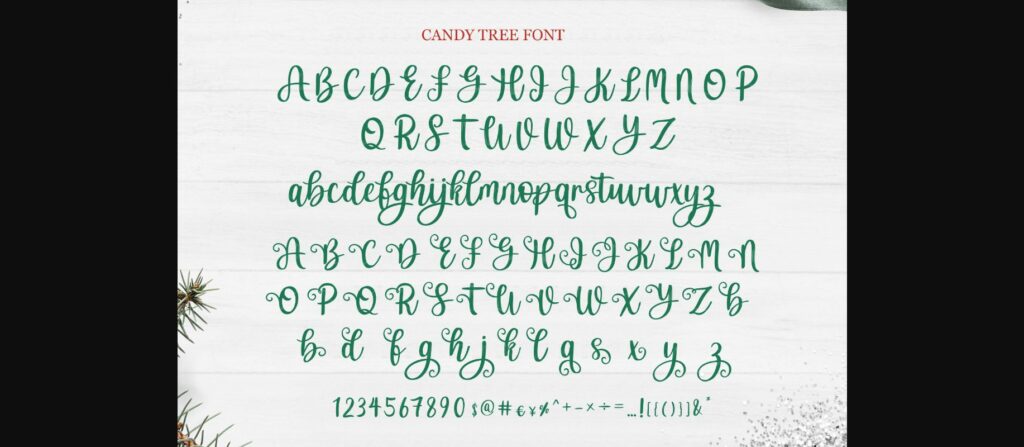 CANDY TREE FONT
ABCDEFGHIJKLMNOP
QRSTUVWXYZ
abcdefghijklmnopqrstuvwxyz
ABCD EFGHIJKLMN
OPQRSTUVWXYZ b
b d f g h j k l q s x y z
1234567890 $@#€¥%^+-×÷=...![{()}]&*